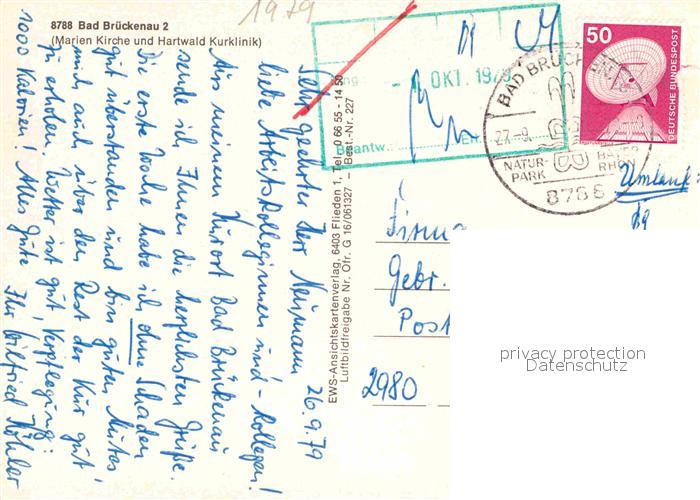 1979
8788 Bad Brückenau 2
(Marien Kirche und Hartwald Kurklinik)
26.9.79
Sehr geehrter Herr Neumann
liebe Arbeitskolleginnen und -Kollegen!
Aus meinem Kurort Bad Brückenau
sende ich Ihnen die herzlichsten Grüße.
Die erste Woche habe ich ohne Schaden
gut überstanden und bin guten Mutes
mich auch über den Rest der Kur gut
zu erholen. Wetter ist gut, Verpflegung:
1000 Kalorien! Alles Gute Ihr Wilfried Köhler
EWS-Ansichtskartenverlag, 6403 Flieden 1, Tel. 0 66 55 - 14 50
Luftbildfreigabe Nr. Ofr. G 16/061327 Best.-Nr. 227
OKT. 1979
Beantw.
50
DEUTSCHE BUNDESPOST
BAD BRÜCKENAU
27.-9.
NATUR-
PARK
BAYER.
RHÖN
8788
Umlauf:
Firma
Gebr.
Post
2980
privacy protection
Datenschutz